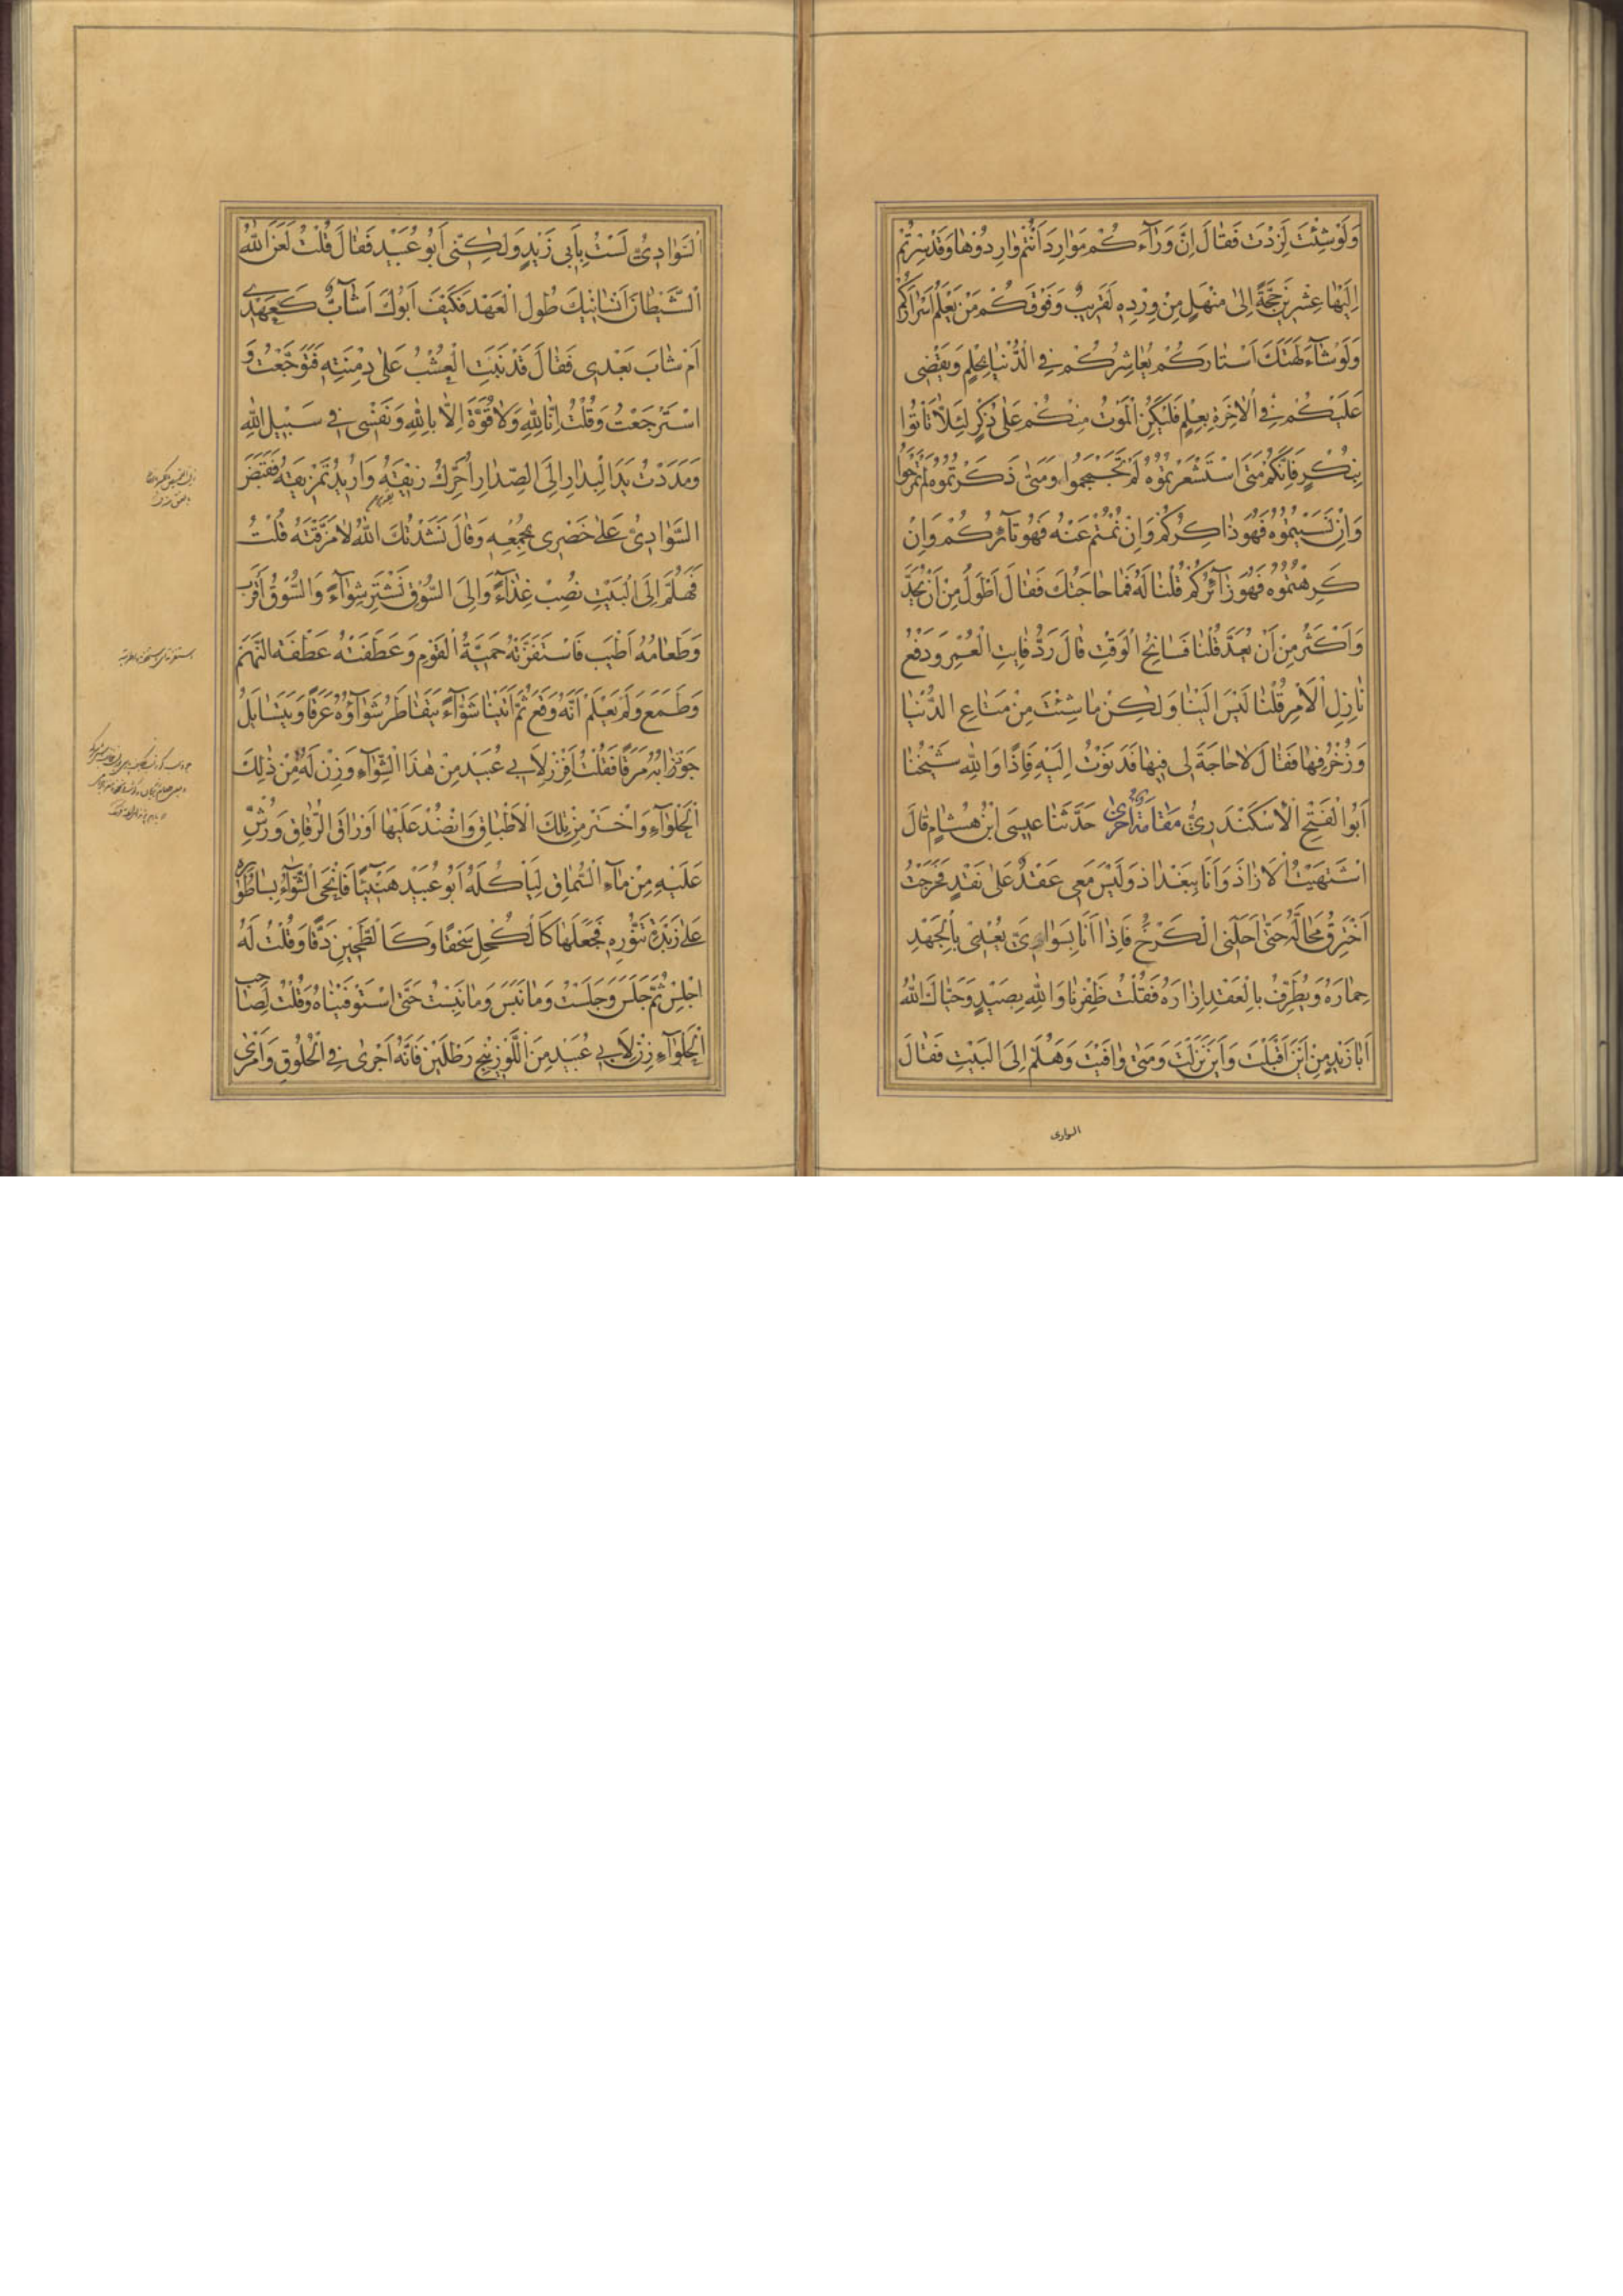 وَلَوْ شِئْتَ لَزِدْتَ فَقَالَ اِنَّ وَرَآءَكُمْ مَوَارِدَ اَنْتُمْ وَارِدُوهَا وَقَدْ سِرْتُمْ
اِلَيْهَا عِشْرِينَ حِجَّةً اِلىٰ مَنْهَلٍ مِنْ وِرْدِهِ لَقَرِيبٌ وَفَوْقَكُمْ مَنْ يَعْلَمُ اَسْرَارَكُمْ
وَلَوْ شَآءَ لَهَتَكَ اَسْتَارَكُمْ يُعَاشِرُكُمْ فِي الدُّنْيَا بِحِلْمٍ وَيَقْضِي
عَلَيْكُمْ فِي الْاٰخِرَةِ بِعِلْمٍ فَلْيَكُنِ الْمَوْتُ مِنْكُمْ عَلىٰ ذِكْرٍ لِئَلَّا تَأْتُوا
بِنُكْرٍ فَاِنَّكُمْ مَتىٰ اسْتَشْعَرْتُمُوهُ لَمْ تَجْمَحُوا وَمَتىٰ ذَكَرْتُمُوهُ لَمْ تَمْرَحُوا
وَاِنْ نَسِيتُمُوهُ فَهُوَ ذَاكِرُكُمْ وَاِنْ نُمْتُمْ عَنْهُ فَهُوَ ثَآئِرُكُمْ وَاِنْ
كَرِهْتُمُوهُ فَهُوَ زَآئِرُكُمْ قُلْنَا لَهُ فَمَا حَاجَتُكَ فَقَالَ اَطْوَلُ مِنْ اَنْ تُحَدَّ
وَاَكْثَرُ مِنْ اَنْ تُعَدَّ قُلْنَا فَسَانِحُ الْوَقْتِ قَالَ رَدُّ فَايِتِ الْعُمْرِ وَدَفْعُ
نَازِلِ الْاَمْرِ قُلْنَا لَيْسَ اِلَيْنَا وَلٰكِنْ مَا شِئْتَ مِنْ مَتَاعِ الدُّنْيَا
وَزُخْرُفِهَا فَقَالَ لَا حَاجَةَ لِي فِيهَا فَدَنَوْتُ اِلَيْهِ فَاِذَا وَاللهِ شَيْخُنَا
اَبُو الْفَتْحِ الْاِسْكَنْدَرِيُّ مَقَامَةٌ اُخْرىٰ حَدَّثَنَا عِيسَى ابْنُ هِشَامٍ قَالَ
اشْتَهَيْتُ الْاَزَاذَ وَاَنَا بِبَغْدَاذَ وَلَيْسَ مَعِي عَقْدٌ عَلىٰ نَقْدٍ فَخَرَجْتُ
اَخْتَرِقُ مَحَالَّهُ حَتّىٰ اَحَلَّنِي الْكَرْخَ فَاِذَا اَنَا بِسَوَادِيٍّ يَعْلِي بِالْجَهْدِ
حِمَارَهُ وَيُطَرِّفُ بِالْعَقْدِ اِزَارَهُ فَقُلْتُ ظَفِرْنَا وَاللهِ بِصَيْدٍ وَحَيَّاكَ اللهُ
اَبَا زَيْدٍ مِنْ اَيْنَ اَقْبَلْتَ وَاَيْنَ نَزَلْتَ وَمَتىٰ وَافَيْتَ وَهَلُمَّ اِلَى الْبَيْتِ فَقَالَ
السوادى
السَّوَادِيُّ لَسْتُ بِاَبِي زَيْدٍ وَلٰكِنِّي اَبُو عُبَيْدٍ فَقَالَ قُلْتُ لَعَنَ اللهُ
الشَّيْطَانَ اَنْسَانِيكَ طُولُ الْعَهْدِ فَكَيْفَ اَبُوكَ اَشَآبٌّ كَعَهْدِي
اَمْ شَابَ بَعْدِي فَقَالَ قَدْ نَبَتَ الْعُشْبُ عَلىٰ دِمْنَتِهِ فَتَوَجَّعْتُ وَ
اسْتَرْجَعْتُ وَقُلْتُ اِنَّا لِلّٰهِ وَلَا قُوَّةَ اِلَّا بِاللهِ وَنَفْسِي فِي سَبِيلِ اللهِ
وَمَدَدْتُ يَدَ الْبِدَارِ اِلَى الصِّدَارِ اُحَرِّكُ زِيقَهُ وَاُرِيدُ تَمْزِيقَهُ فَقَبَضَ
السَّوَادِيُّ عَلىٰ خَصْرِي بِجُمْعِهِ وَقَالَ نَشَدْتُكَ اللهَ لَا مَزَّقْتَهُ قُلْتُ
فَهَلُمَّ اِلَى الْبَيْتِ نُصِبْ غِذَآءً وَاِلَى السُّوقِ نَشْتَرِ شِوَآءً وَالسُّوقُ اَقْرَبُ
وَطَعَامُهُ اَطْيَبُ فَاسْتَفَزَّتْهُ حَمِيَّةُ الْقَوْمِ وَعَطَفَتْهُ عَطْفَةُ النَّهَمِ
وَطَمِعَ وَلَمْ يَعْلَمْ اَنَّهُ وَقَعَ ثُمَّ اَتَيْنَا شَوَّآءً يَتَقَاطَرُ شِوَآؤُهُ عَرَقًا وَيَتَسَايَلُ
جَوْذَابُهُ مَرَقًا فَقُلْتُ اَفْرِزْ لِاَبِي عُبَيْدٍ مِنْ هٰذَا الشِّوَآءِ وَزِنْ لَهُ مِنْ ذٰلِكَ
الْحَلْوَآءِ وَاخْتَرْ مِنْ تِلْكَ الْاَطْبَاقِ وَانْضُدْ عَلَيْهَا اَوْرَاقَ الرُّقَاقِ وَرُشَّ
عَلَيْهِ مِنْ مَآءِ السُّمَاقِ لِيَأْكُلَهُ اَبُو عُبَيْدٍ هَنِيئًا فَانْحَى الشَّوَّآءُ بِسَاطُورِهِ
عَلىٰ زُبْدَةِ تَنُّورِهِ فَجَعَلَهَا كَالْكُحْلِ سَحْقًا وَكَالطِّحْنِ دَقًّا وَقُلْتُ لَهُ
اجْلِسْ ثُمَّ جَلَسَ وَجَلَسْتُ وَمَا نَبَسَ وَمَا نَبَسْتُ حَتّىٰ اسْتَوْفَيْنَاهُ وَقُلْتُ لِصَاحِبِ
الْحَلْوَآءِ زِنْ لِاَبِي عُبَيْدٍ مِنَ اللَّوْزِينَجِ رَطْلَيْنِ فَاِنَّهُ اَجْرىٰ فِي الْحُلُوقِ وَاَمْرىٰ